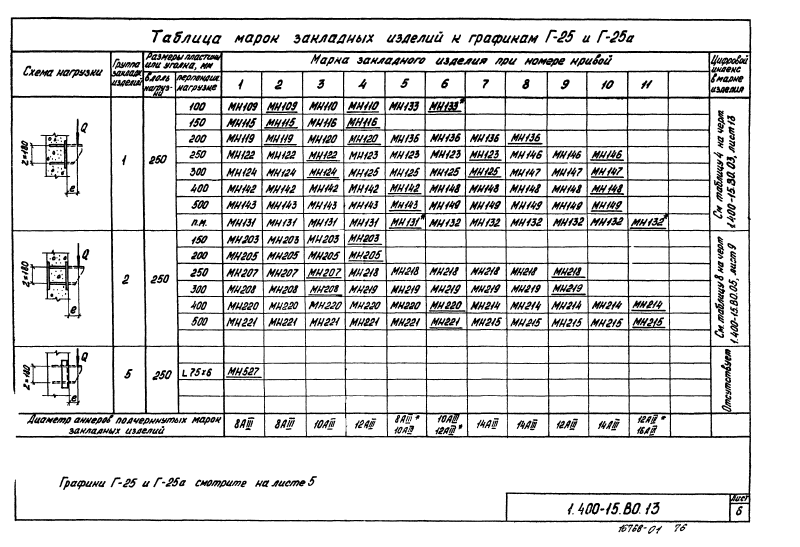 Таблица марок закладных изделий к графикам Г-25 и Г-25а
Схема нагрузки Группа закладн. изделий Размеры пластины или уголка, мм Марка закладного изделия при номере кривой Цифровой индекс в марке изделия
вдоль нагрузки перпендик. нагрузке 1 2 3 4 5 6 7 8 9 10 11
Q z=180 e 1 250
100 МН109 МН109 МН110 МН110 МН133 МН133*
150 МН115 МН115 МН116 МН116
200 МН119 МН119 МН120 МН120 МН136 МН136 МН136 МН136
250 МН122 МН122 МН122 МН123 МН123 МН123 МН123 МН146 МН146 МН146
300 МН124 МН124 МН124 МН125 МН125 МН125 МН125 МН147 МН147 МН147
400 МН142 МН142 МН142 МН142 МН142 МН148 МН148 МН148 МН148 МН148
500 МН143 МН143 МН143 МН143 МН143 МН149 МН149 МН149 МН149 МН149
п.м. МН131 МН131 МН131 МН131 МН131* МН132 МН132 МН132 МН132 МН132 МН132*
См. таблицу 4 на черт. 1.400-15.В0.03, лист 13
Q z=180 e 2 250
150 МН203 МН203 МН203 МН203
200 МН205 МН205 МН205 МН205
250 МН207 МН207 МН207 МН218 МН218 МН218 МН218 МН218 МН218
300 МН208 МН208 МН208 МН219 МН219 МН219 МН219 МН219 МН219
400 МН220 МН220 МН220 МН220 МН220 МН220 МН214 МН214 МН214 МН214 МН214
500 МН221 МН221 МН221 МН221 МН221 МН221 МН215 МН215 МН215 МН215 МН215
См. таблицу 8 на черт. 1.400-15.В0.05, лист 9
Q z=140 e 5 250 L75×6 МН527
Отсутствует
Диаметр анкеров подчеркнутых марок закладных изделий 8АIII 8АIII 10АIII 12АIII 8АIII* 10АIII 10АIII 12АIII* 14АIII 14АIII 12АIII 14АIII 12АIII* 16АIII
Графики Г-25 и Г-25а смотрите на листе 5
1.400-15.В0.13
Лист
6
15768-01 76